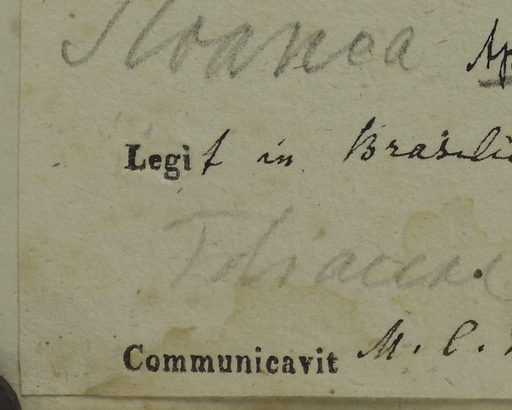 Sloanea Ap
Legit in Brasili
Tiliaceae
Communicavit M. C.